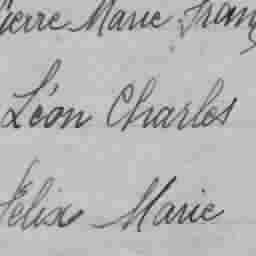 Pierre Marie Franç
Léon Charles
Félix Marie